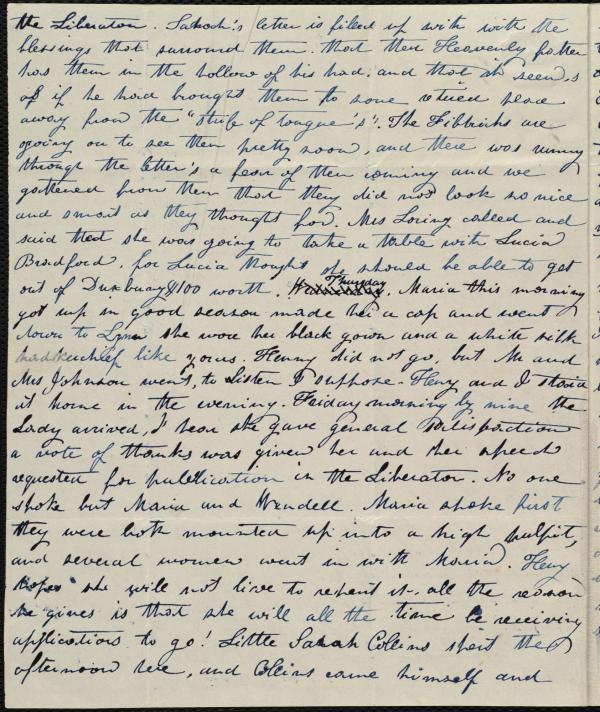 the Liberator. Sarah's letter is filled up with with the
blessings that surround them. that their Heavenly father
has them in the hollow of his had. and that it seem,s
as if he had brought them to some retired place
away from the "strife of tongue's". The Filbricks are
going on to see them pretty soon, and there was runing
through the letter's a fear of their coming and we
gathered from them that they did not look so nice
and smart as they thought for. Mrs Loring called and
said that she was going to take a table with Lucia
Bradford, for Lucia thought she should be able to get
out of Duxbury $100 worth. Thursday, Maria this morning
got up in good season made her a cap and went
down to Lynn she wore her black gown and a white silk
hadkerchief like yours. Henry did not go, but Mr and
Mrs Johnson went, to Listen I suppose. Henry and I staid
at home in the evening. Friday morning by nine the
Lady arrived, I hear she gave general satisfaction
a vote of thanks was given her and her speech
requested for publication in the Liberator. No one
spoke but Maria and Wendell. Maria spoke first
they were both mounted up into a high pulpit,
and several women went in with Maria. Henry
hopes she will not live to repent it. all the reason
he gives is that she will all the time be receiving
applications to go! Little Sarah Collins spent the
afternoon here, and Collins came himself and